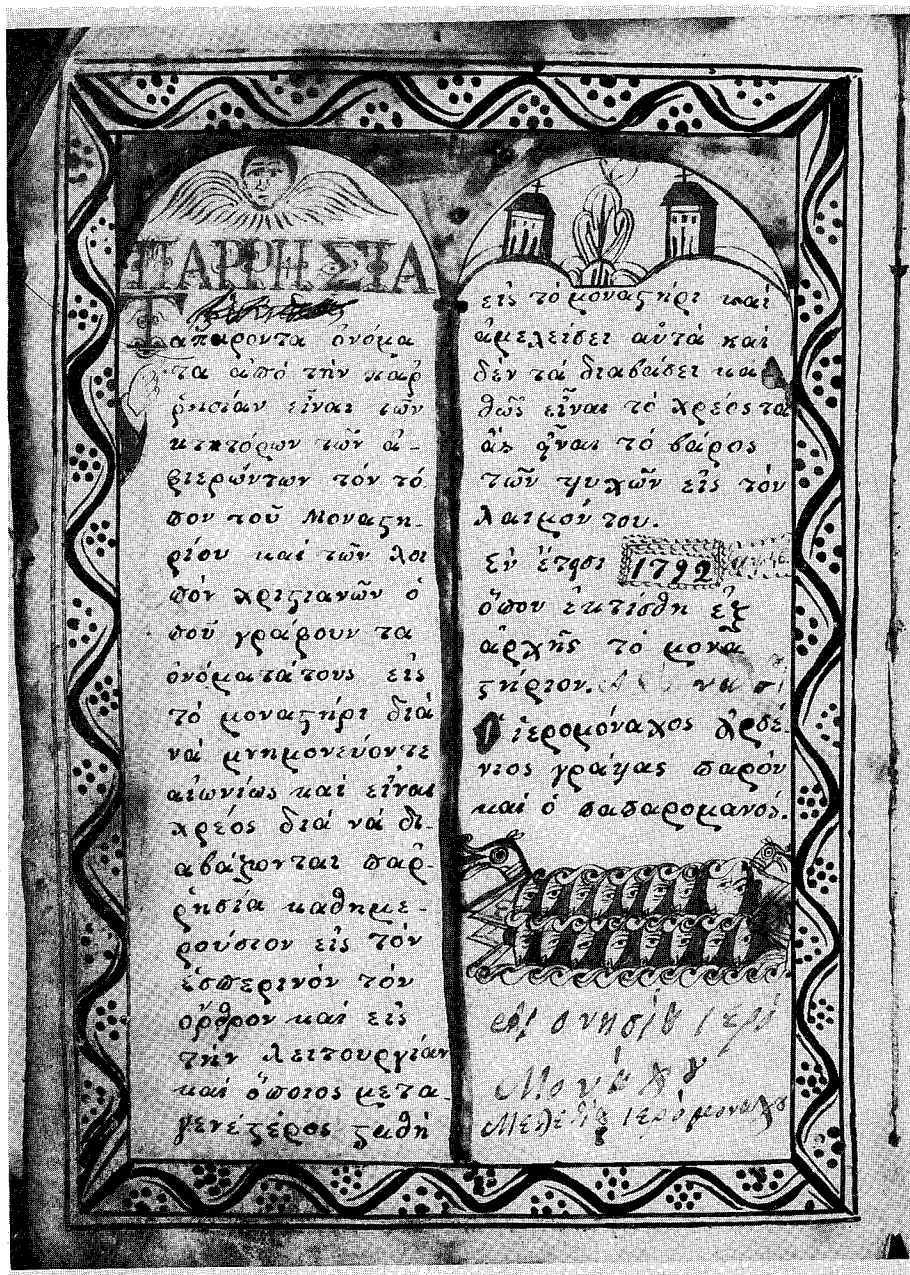 ΠΑΡΡΗΣΙΑ
Ταπαρόντα ὀνόμα
τα ἀπό τήν παῤ
ῥησίαν εἶναι τῶν
κτητόρων τῶν ἀ-
φιερώντων τόν τό
πον τοῦ Μοναϛη-
ρίου καί τῶν λοι
πόν χριϛιανῶν ὁ
ποῦ γράφουν τα
ὀνόματάτους εἰς
τό μοναϛήρι διά
νά μνημονεύοντε
αἰωνίως καί εἶναι
χρέος διά νά δι-
αβάζονται παῤ-
ῥησία καθημε-
ρούσιον εἰς τόν
ἑσπερινόν τόν
ὄρθρον καί εἰς
τήν λειτουργίαν
καί ὅποιος μετα-
γενέϛερος ϛαθῆ
εἰς τό μοναϛήρι καί
ἀμελείσει αὐτά καί
δέν τά διαβάσει κα
θῶς εἶναι τό χρέος τα
ἄς ἦναι τό βάρος
τῶν ψυχῶν εἰς τόν
λαιμόν του.
Εν ἔτησι 1792
ὅπου ἐκτίσθη ἐξ
ἀρχῆς τό μονα
ϛήριον.
ἱερομόναχος Ἀρσέ-
νιος γράψας παρόν
καί ὁ παπαρομανός.
Διονησίου ιερο
Μονάχου
Μελετίου ιερομοναχου